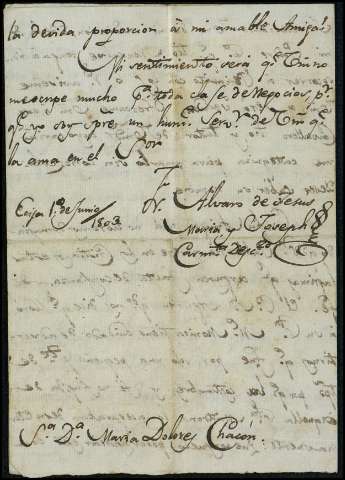 la devida proporcion á mi amable Amiga.
Mi sentimiento será qᵉ Vm no
me ocupe mucho pᵃ toda clase de Negocios, pʳ
qᵉ yo soy spre un humᵉ Servʳ de Vm qᵉ
la ama en el Sor
F
Fr. Alvaro de Jesus
Maria y Joseph
Ecija 1º de Junio
1803
Carmᵗᵃ Descᵒ
Sª. Dª. Maria Dolores Chacón.